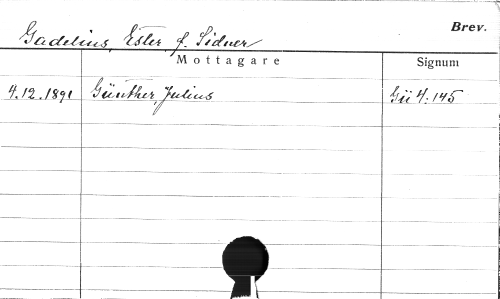 Brev.
Gadelius, Ester f. Sidner
Mottagare Signum
4.12.1891 Günther, Julius Gü 4:145